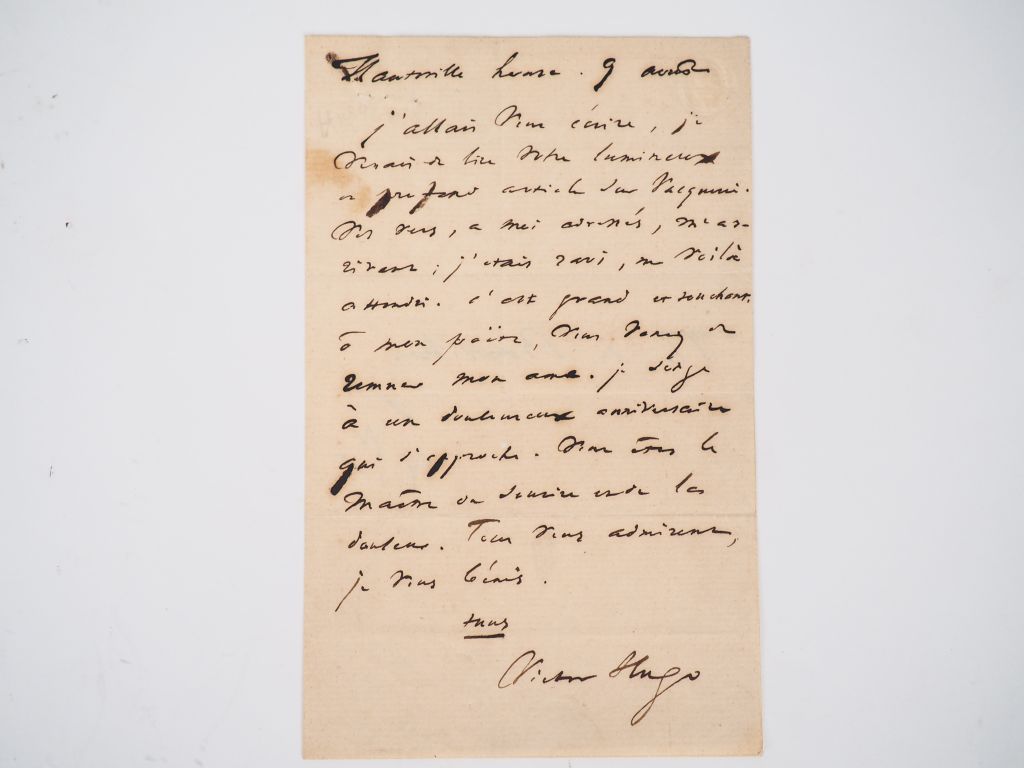 Hauteville house. 9 août
j'allais vous écrire, je
venais de lire votre lumineux
et profond article sur Vacquerie.
Vos vers, à moi adressés, m'ar-
rivent ; j'étais ravi, me voilà
attendri. c'est grand et touchant.
ô mon poëte, vous venez de
remuer mon âme. je songe
à un douloureux anniversaire
qui s'approche. Vous êtes le
Maître du sourire et de la
douleur. Tous vous admirent,
je vous bénis.
tuus
Victor Hugo